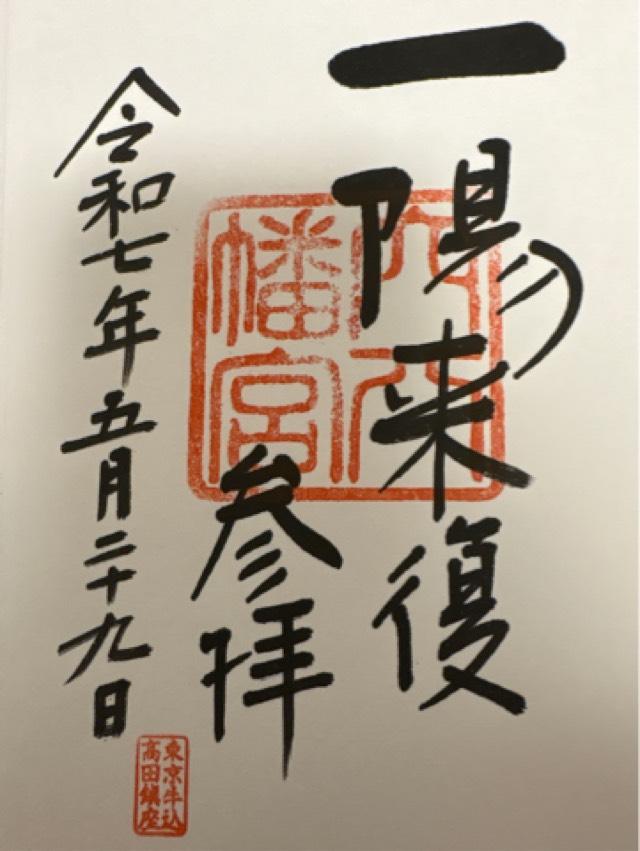 一陽来復
参拝
令和七年五月二十九日
穴八
幡宮
東京牛込
高田鎮座